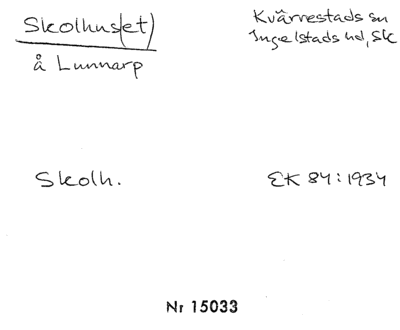 Skolhus(et)
å Lunnarp
Kvärrestads sn
Ingelstads hd, Sk
Skolh.
EK 84:1934
Nr 15033